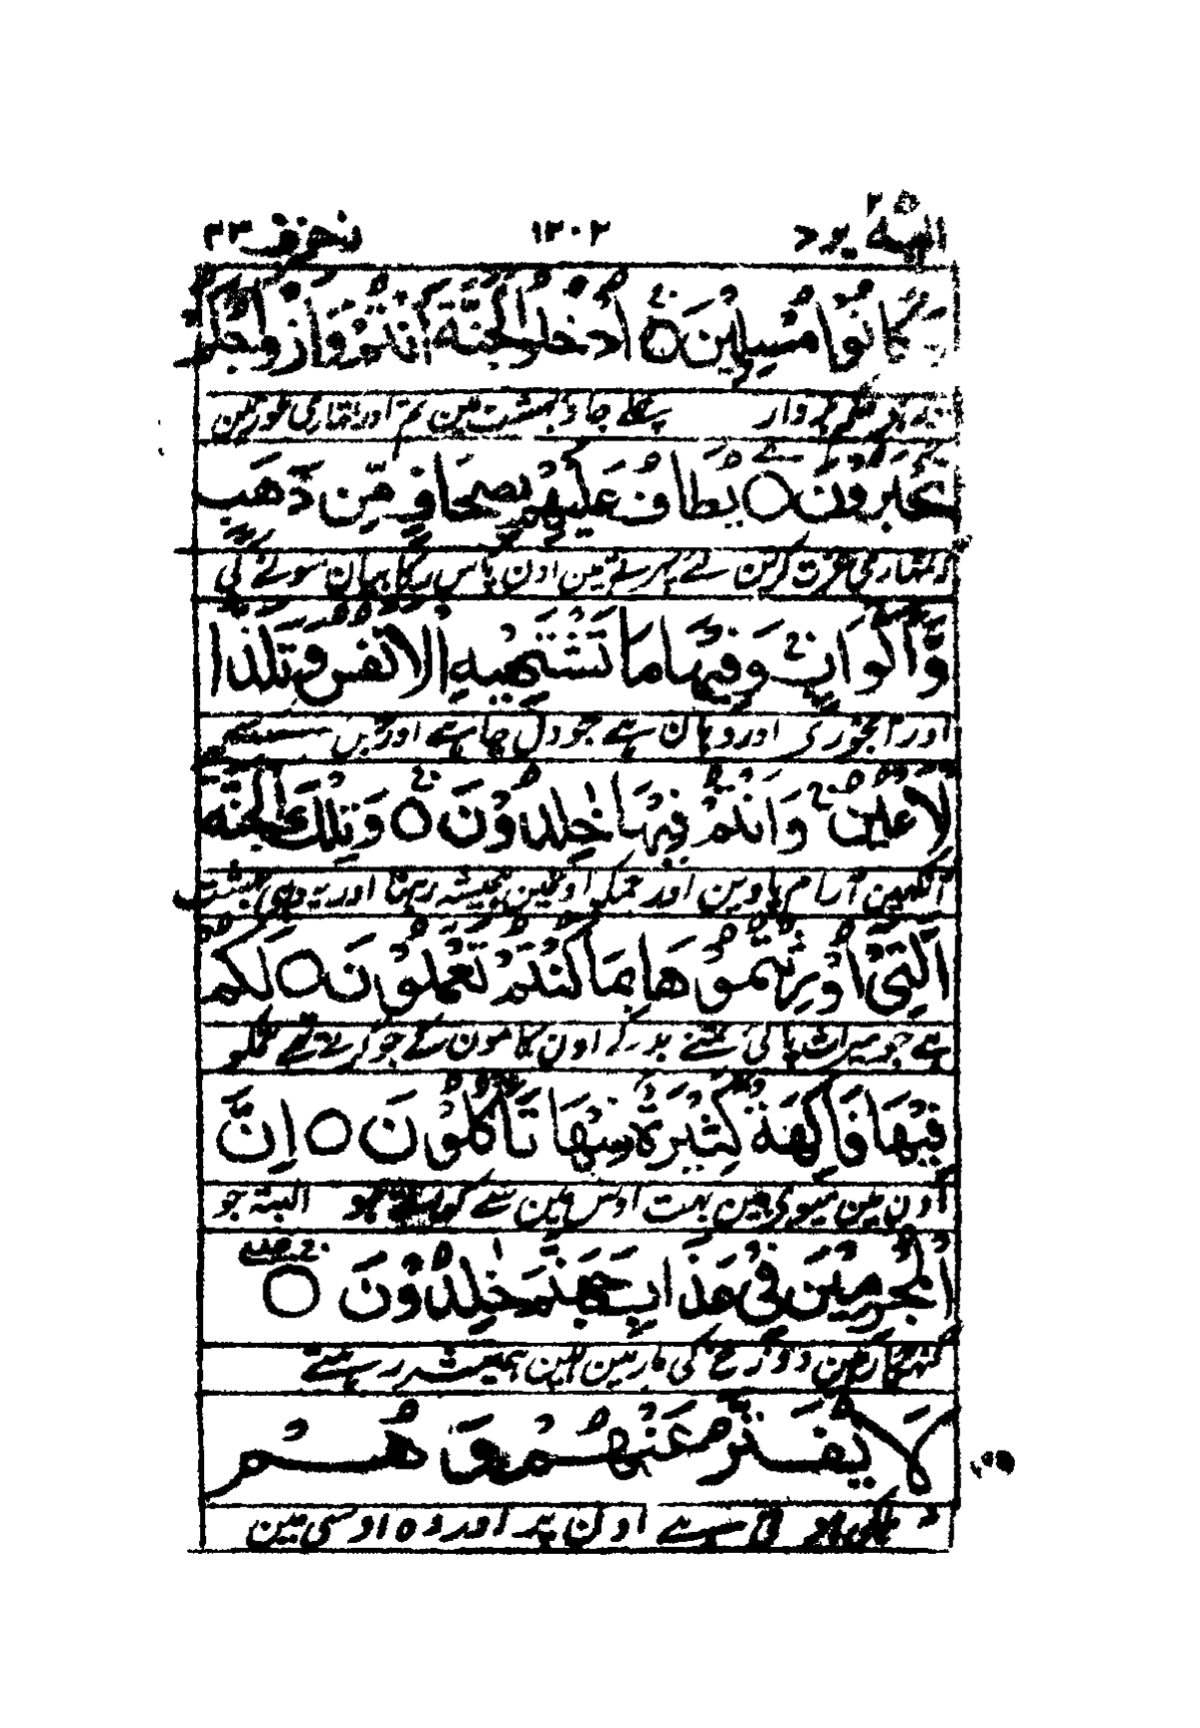 الیه یرد ۲۵ ۱۳۰۲ زخرف ۴۳
كَانُوا مُسْلِمِيْنَ ○ اُدْخُلُوا الْجَنَّةَ اَنْتُمْ وَاَزْوَاجُكُمْ
حکم بردار چلے جاؤ بہشت مین تم اور تمہاری عورتین
تُحْبَرُوْنَ ○ يُطَافُ عَلَيْهِمْ بِصِحَافٍ مِّنْ ذَهَبٍ
کہ تمہاری عزت کرین لئے پھرتے ہین اون پاس رکابیان سونے کی
وَّاَكْوَابٍ وَفِيْهَا مَا تَشْتَهِيْهِ الْاَنْفُسُ وَتَلَذُّ ا
اور آبخوری اور وہان ہے جو دل چاہے اور جس سے
لْاَعْيُنُ وَاَنْتُمْ فِيْهَا خٰلِدُوْنَ ○ وَتِلْكَ الْجَنَّةُ
آنکھین آرام پاوین اور تمکو اونمین ہمیشہ رہنا اور یہ وہی بہشت
الَّتِيْ اُوْرِثْتُمُوْهَا بِمَا كُنْتُمْ تَعْمَلُوْنَ ○ لَكُمْ
ہے جو میراث پائی تمنے بدلے اون کامون کے جو کرتے تھے تمکو
فِيْهَا فَاكِهَةٌ كَثِيْرَةٌ مِّنْهَا تَاْكُلُوْنَ ○ اِنَّ
اون مین میوی ہین بہت اوس مین سے البتہ جو
الْمُجْرِمِيْنَ فِيْ عَذَابِ جَهَنَّمَ خٰلِدُوْنَ ○
گنہگار ہین دوزخ کی مار مین ہین ہمیشہ رہتے
لَا يُفَتَّرُ عَنْهُمْ وَهُمْ
نہ ہلکی ہوتی ہے اون پر اور وہ اوسی مین